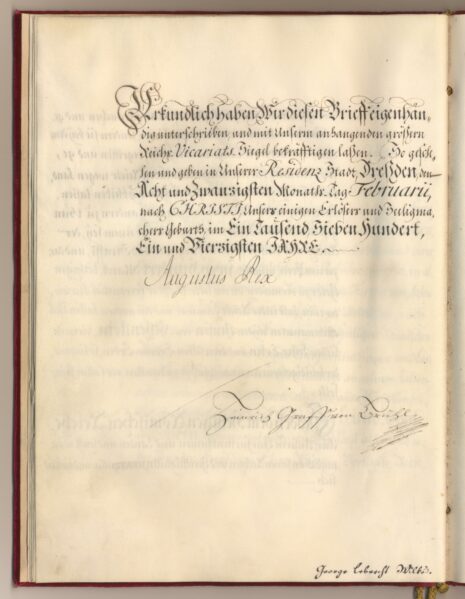 Urkundlich haben Wir diesen Brieff eigenhän-
dig unterschrieben, und mit Unserm anhangenden grössern
Reichs Vicariats Siegel bekräfftigen laßen. So gesche-
hen und geben in Unserer Residenz Stadt, Dreßden, den
Acht und Zwanzigsten Monaths Tag Februarii,
nach CHRISTI, Unsers einigen Erlösers und Seeligma-
chers Geburth, im Ein Tausend Sieben Hundert,
Ein und Vierzigsten JAHRE.
Augustus Rex
Heinrich Graff von Brühl
George Lebrecht